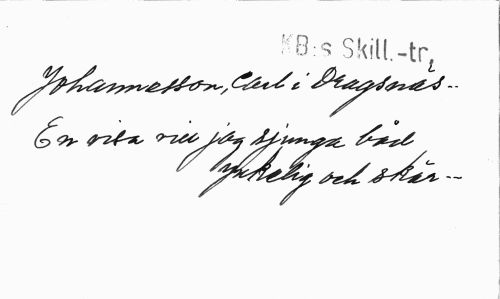 KB:s Skill.-tr,
Johannesson, Carl i Dragsnäs--
En visa vill jag sjunga båd
ynkelig och skär--